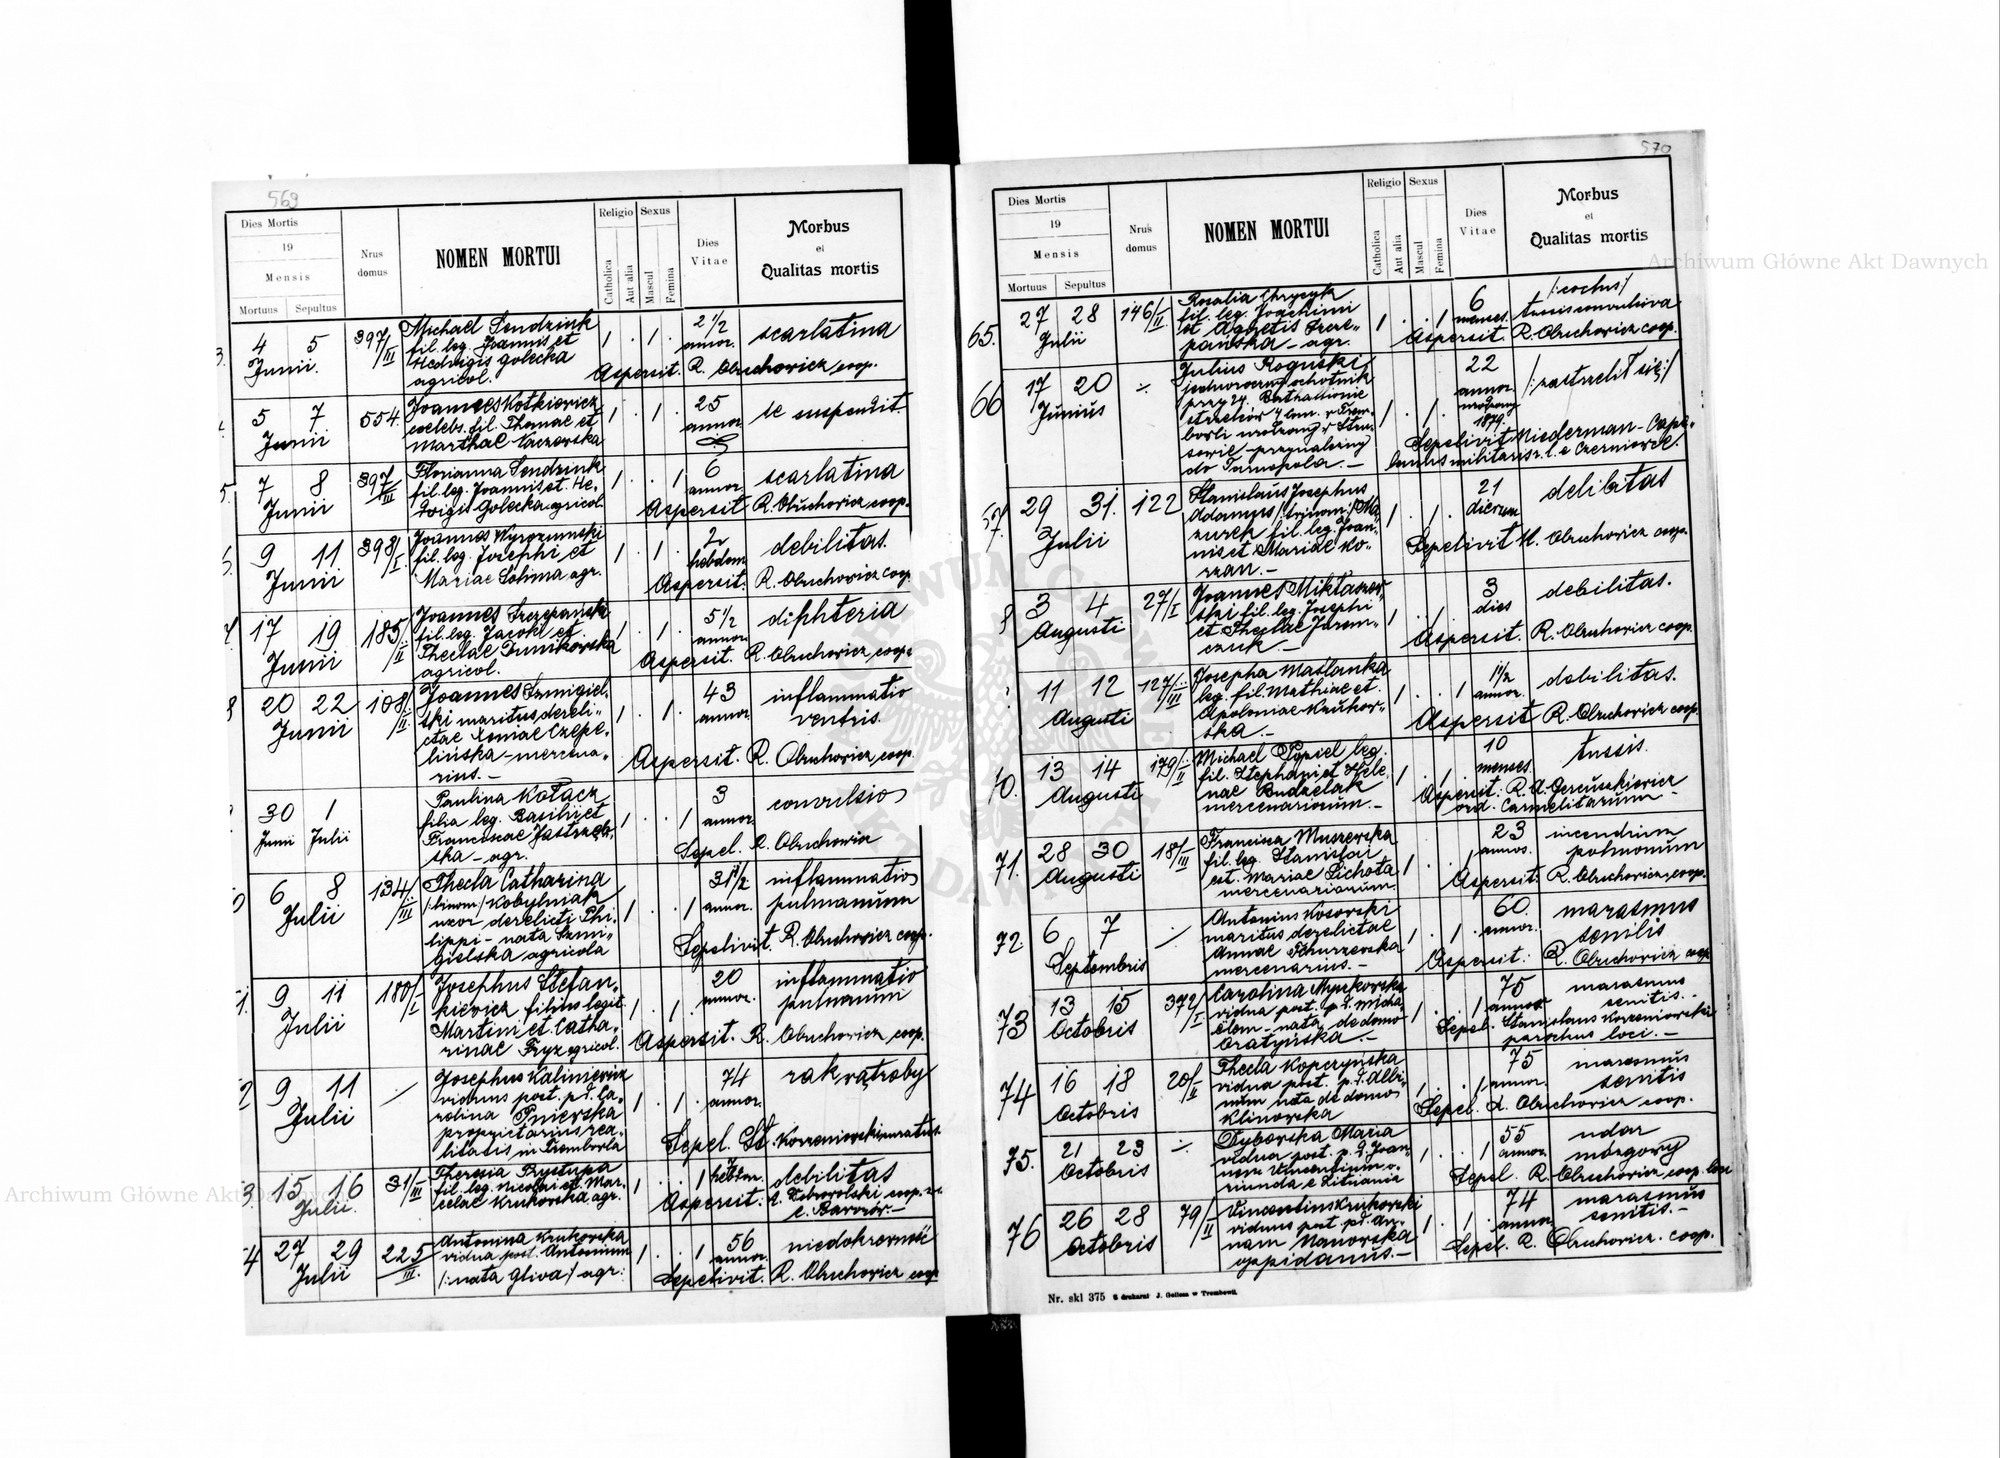 569
Dies Mortis
19
Mensis
Mortuus Sepultus
Nrus domus
NOMEN MORTUI
Religio
Catholica
Aut alia
Sexus
Mascul
Femina
Dies Vitae
Morbus
et
Qualitas mortis
4 5 397/III Michael Sendziuk 1 . 1 . 2 1/2 scarlatina
Junii. fil. leg. Joannis et annor.
Hedvigis Golecka
agricol. Aspersit. R. Obuchowicz coop.
5 7 554. Joannes Kotkiewicz 1 . 1 . 25 se suspendit.
Junii coelebs. fil. Thomae et annor.
Marthae
7 8 397/III Florianna Sendziuk 1 . . 1 6 scarlatina
Junii fil. leg. Joannis et He-
dvigis Golecka agricol. Aspersit R. Obuchowicz coop.
9 11 398/I Joannes Wyrozumski 1 . 1 . 2 debilitas.
Junii fil. leg. Josephi et hebdom.
Mariae Sohima agr. Aspersit. R. Obuchowicz coop.
17 19 185/II Joannes Szczepański 1 . 1 . 5 1/2 diphteria
Junii fil. leg. Jacobi et annor.
Theclae Dunikowska Aspersit. R. Obuchowicz coop.
agricol.
20 22 108/II Joannes Szmigiel- 1 . 1 . 43 inflammatio
Junii ski maritus dereli- annor. ventris.
ctae Czepe-
lińska – mercena-
rius. – Aspersit. R. Obuchowicz coop.
30 1 Paulina Kołacz 1 . . 1 3 convulsio
Junii Julii filia leg. Basilii et annor.
Franciscae Jastrzęb-
ska – agr. Sepel. R. Obuchowicz
6 8 134/III Thecla Catharina 1 . . 1 31 1/2 inflammatio
Julii /:binom:/ Kobylniak annor. pulmonum
uxor derelicti Phi-
lippi – nata Szmi-
gielska agricola Sepelivit. R. Obuchowicz coop.
9 11 180/I Josephus Stefan- 1 . 1 . 20 inflammatio
Julii kiewicz filius legit. annor. pulmonum
Martini et Catha-
rinae Fryz agricol. Aspersit. R. Obuchowicz coop.
9 11 Josephus Kaliniewicz 1 . 1 . 74 rak wątroby
Julii viduus post. p. d. Ca- annor.
rolina Pniewska
proprietarius rea-
litatis in Trembowla Sepel. St. Korzeniowski curatus.
15 16 31/III Theresia Przystupa 1 . . 1 7 hebdom. debilitas
Julii. fil. leg. Nicolai et Mar-
cellae Krukowska agr. Aspersit: A. Dobrowolski coop.
27 29 225/III. Antonina Krukowska 1 . . 1 56 niedokrewność
Julii vidua post. Antonium annor.
/:nata Gliwa:/ agr: Sepelivit. R. Obuchowicz coop
570
Dies Mortis
19
Mensis
Mortuus Sepultus
Nrus domus
NOMEN MORTUI
Religio
Catholica
Aut alia
Sexus
Mascul
Femina
Dies Vitae
Morbus
et
Qualitas mortis
65. 27 28 146/II Rosalia Chrycyk 1 . . 1 6 menses. /:coclus:/
Julii fil. leg. Joachimi tussis convulsiva
et Agnetis Szcze-
pańska – agr. Aspersit. R. Obuchowicz coop.
66 17 20 Julius Roguski 1 . 1 . 22 /:zastrzelił się:/
Junius jednoroczny ochotnik annor.
przy 24. Bathalionie urodzony
strzelców 4 kom. w Trem- 1879.
bowli urodzony w Stru-
sowie – przynależny Sepelivit Miederman – Cape-
do Tarnopola. – lanus militaris r. l. e Czerniowce.
67. 29 31. 122 Stanislaus Josephus 1 . 1 . 21 debilitas
Julii Adamus /:trinom:/ Ma- dierum
zurek fil. leg. Joan-
nis et Mariae Ko-
rzan. – Sepelivit R. Obuchowicz coop.
8 3 4 27/I Joannes Miktaszew- 1 . 1 . 3 debilitas.
Augusti ski fil. leg. Josephi dies
et Theclae Jarem-
czuk – Aspersit. R. Obuchowicz coop.
11 12 127/III Josepha Maślanka 1 . . 1 1 1/2 debilitas.
Augusti leg. fil. Mathiae et annor.
Apoloniae Krukow-
ska. – Aspersit R. Obuchowicz coop.
70. 13 14 179/II Michael Pypiel leg. 1 . 1 . 10 tussis.
Augusti fil. Stephani et Hele- menses.
nae Budzelak Aspersit: R. A.
mercenariorum. – ord. Carmelitarum –
71. 28 30 18/III Francisca Muszewska 1 . . 1 23 incendium
Augusti fil. leg. Stanislai annos. pulmonum
et. Mariae Lichota
mercenariorum. Aspersit: R. Obuchowicz coop.
72. 6 7 Antonius Kosowski 1 . 1 . 60. marasmus
Septembris maritus derelictae annor. senilis
Annae
mercenarius. – Aspersit: R. Obuchowicz coop
73 13 15 372/I Carolina Myrkowska 1 . . 1 75 marasmus
Octobris vidua post. p. d. Micha- annor. senilis. –
ëlem – nata de domo Sepel. Stanislaus Korzeniowski
Oratyńska. – parochus loci. –
74 16 18 20/II Thecla Kopczyńska 1 . . 1 75 marasmus
Octobris vidua post. p. d. Albi- annor. senilis
num nata de domo
Klinowska Sepel. R. Obuchowicz coop.
75. 21 23 Dyborska Maria 1 . . 1 55 udar
Octobris vidua post. p. d. Joan- annor. mózgowy
nem Vincentium o-
riunda e Lituania Sepel. R. Obuchowicz coop. loci
76 26 28 79/II Vincentius Krukowski 1 . 1 . 74 marasmus
Octobris viduus post. p. d. An- annor. senilis. –
nam Manowska
oppidanus. – Sepel. R. Obuchowicz. coop.
Nr. skl 375 Z drukarni J. Gollesa w Trembowli.
Archiwum Główne Akt Dawnych
Archiwum Główne Akt Dawnych
ARCHIWUM GŁÓWNE AKT DAWNYCH